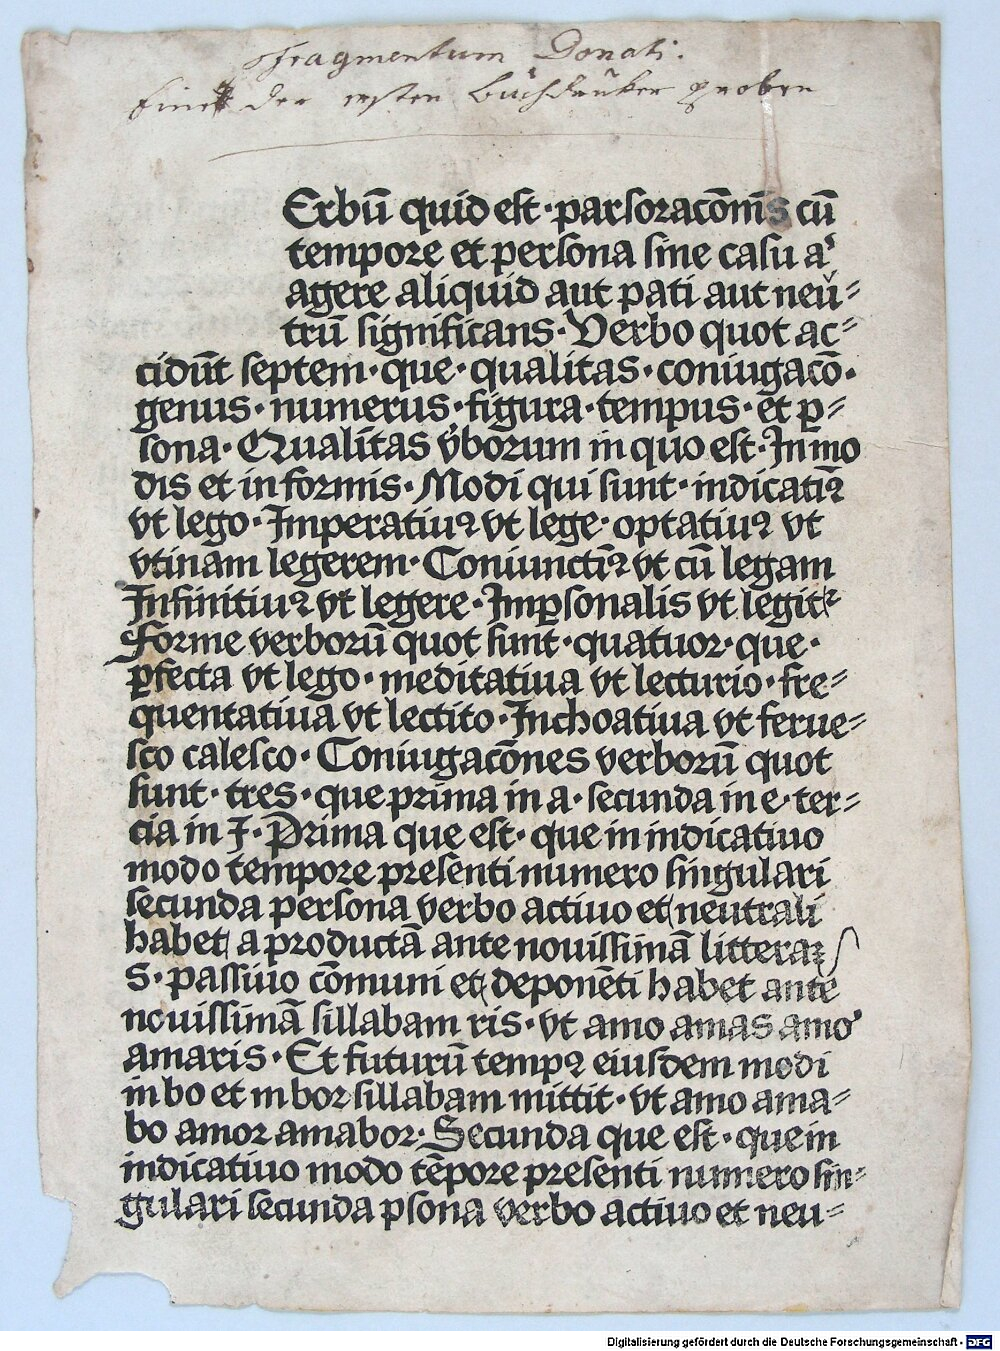 Fragmentum Donati.
Eine der ersten Buchdruker proben
Erbū quid est · pars oracōnis cū
tempore et persona sine casu a'
agere aliquid aut pati aut neu⸗
trū significans · Verbo quot ac⸗
cidūt septem · que · qualitas · coniugacō ·
genus · numerus · figura · tempus · et p⸗
sona · Qualitas v̓borum in quo est · In mo
dis et in formis · Modi qui sunt · indicatiꝰ
vt lego · Imperatiuꝰ vt lege · optatiuꝰ vt
vtinam legerem · Coniunctiꝰ vt cū legam
Infinitiuꝰ vt legere · Imꝑsonalis vt legit᷑
Forme verborū quot sunt · quatuor · que ·
ꝑfecta vt lego · meditatiua vt lecturio · fre⸗
quentatiua vt lectito · Inchoatiua vt ferue⸗
sco calesco · Coniugacōnes verborū quot
sunt · tres · que prima in a · secunda in e · ter⸗
cia in I · Prima que est · que in indicatiuo
modo tempore presenti numero singulari
secunda persona verbo actiuo et neutrali
habet a productā ante nouissimā litteraꝫ
s · passiuo cōmuni et deponēti habet ante
nouissimā sillabam ris · vt amo amas amoꝰ
amaris · Et futurū tempꝰ eiusdem modi
in bo et in bor sillabam mittit · vt amo ama⸗
bo amor amabor · Secunda que est · que in
indicatiuo modo tēpore presenti numero sin⸗
gulari secunda ꝑsona verbo actiuo et neu⸗
Digitalisierung gefördert durch die Deutsche Forschungsgemeinschaft - DFG